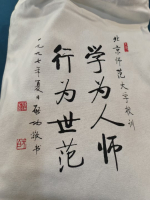 北京师范大学校训
学为人师
行为世范
一九九七年夏日 启功敬书